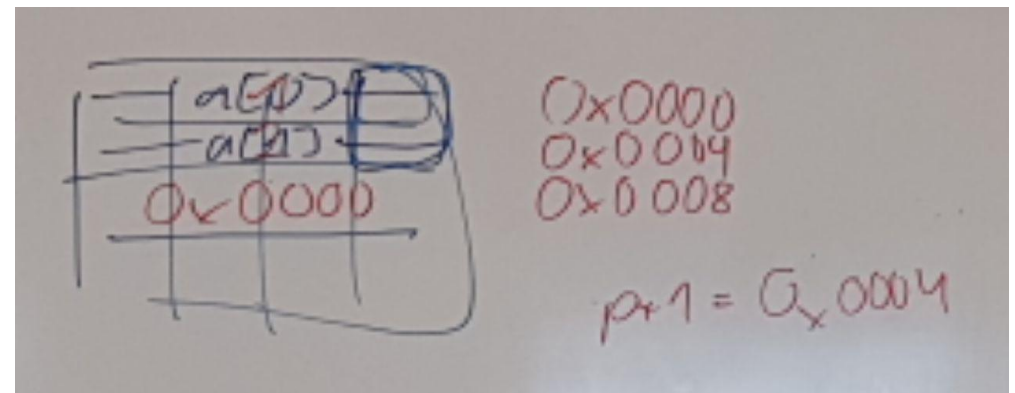 a[0] 0x0000
a[1] 0x0004
0x0000 0x0008
p+1 = 0x0004